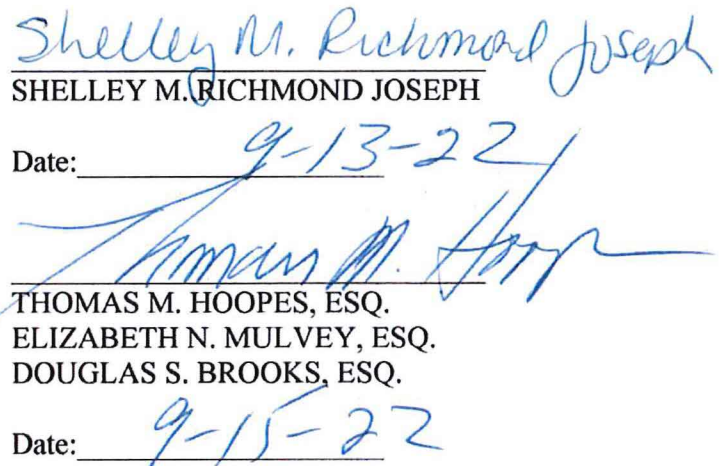 Shelley M. Richmond Joseph
SHELLEY M. RICHMOND JOSEPH
Date: 9-13-22
Thomas M. Hoopes
THOMAS M. HOOPES, ESQ.
ELIZABETH N. MULVEY, ESQ.
DOUGLAS S. BROOKS, ESQ.
Date: 9-15-22